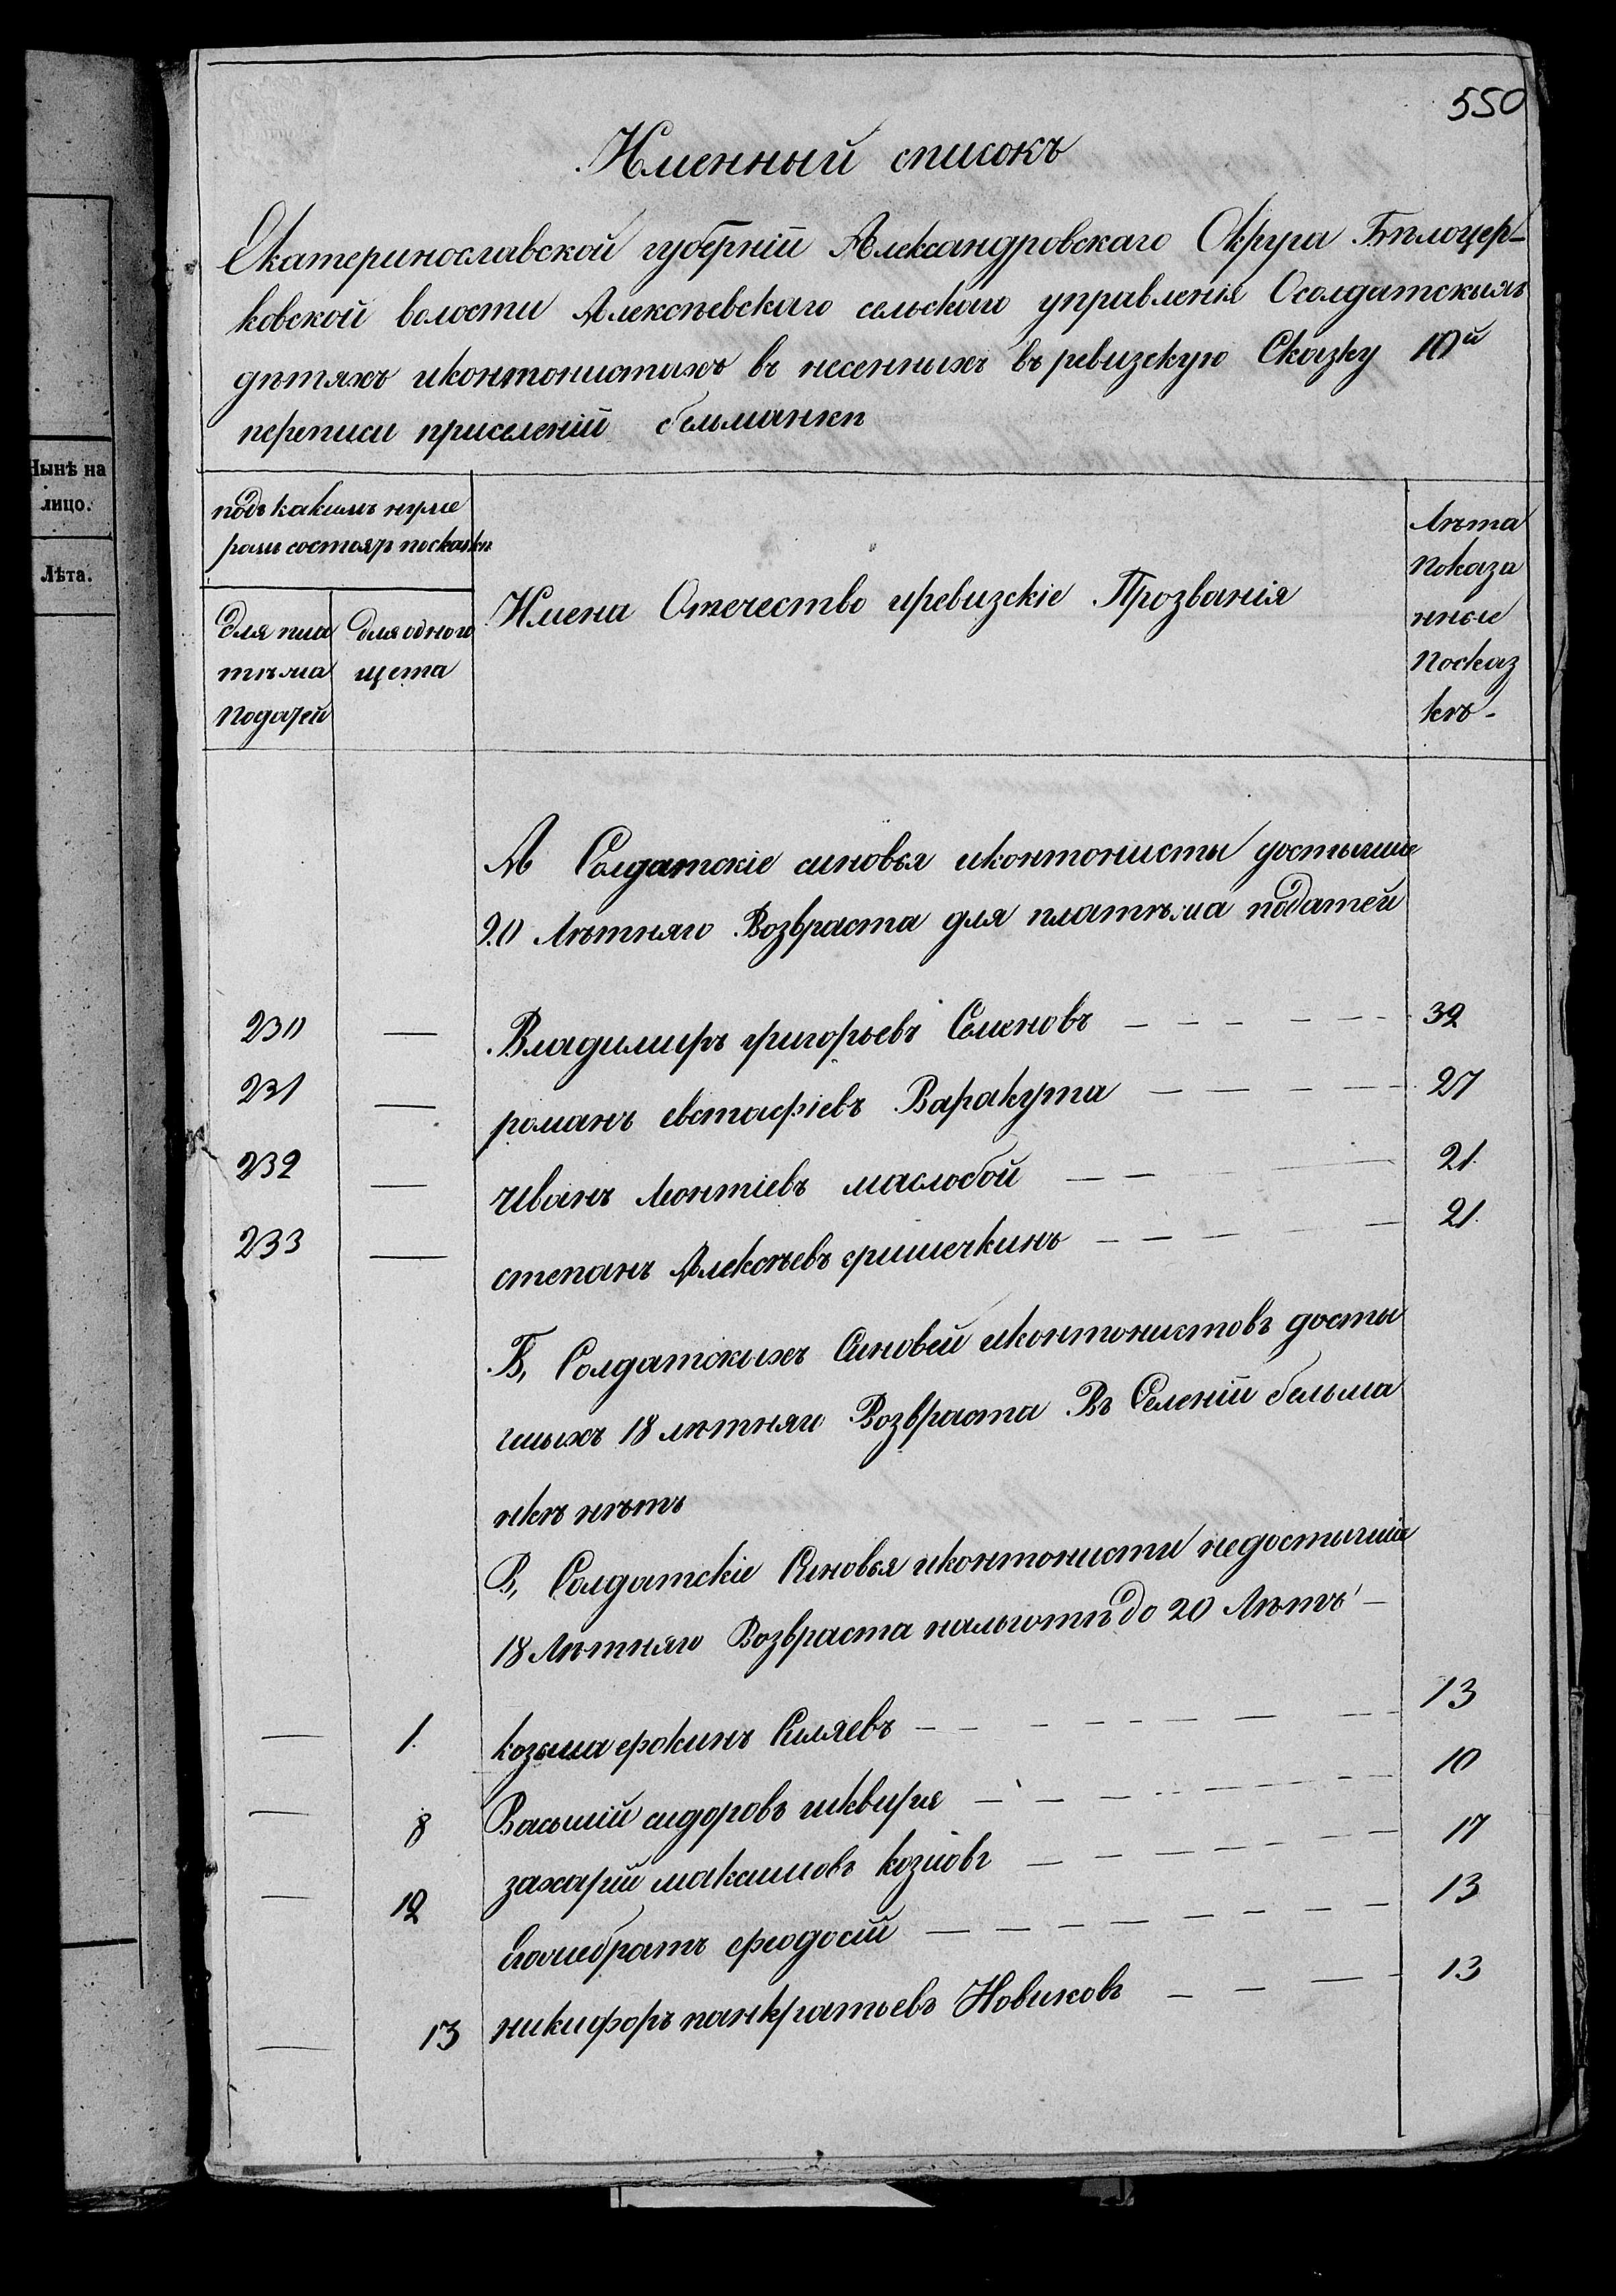 550
Именный списокъ
Екатеринославской губерніи Александровскаго Округа Бѣлоцер-
ковской волости Алексѣевскаго сельскаго управленія Осолдатскихъ
дѣтяхъ иконтонистахъ въ несенныхъ въ ревизскую Сказку 10й
переписи приселеніи бельманкѣ
Нынѣ на
лицо.
Лѣта.
подъ какимъ нуме
ромъ состоят посказкѣ
для пла
тѣжа
Податей
для одного
щета
Имена Отечество иревизскіе Прозванія
Лѣта
Показа
нные
Посказ
кѣ-
А Солдатскіе синовья иконтонисты достыгшіе
20 Лѣтняго Возвраста для платѣжа податей
230 — Владимиръ григорьевъ Семеновъ 32
231 — романъ евстафіевъ Варакута 27
232 — Иванъ Леонтіевъ маслобой 21
233 — степанъ Алексѣевъ гришечкинъ 21
Б, Солдатскихъ Синовей иконтонистовъ досты
гшыхъ 18 лѣтняго Возвраста Въ Селеніи бельма
нкѣ нѣтъ
В, Солдатскіе Синовья иконтонисти недостыгшіе
18 Лѣтняго Возвраста нальготѣ до 20 Лѣтъ —
— 1. козьма ерокинъ Силяевъ 13
— 8 Василій сидоровъ шквиря 10
— 12 захарій максимовъ козловъ 17
Егоибратъ феодосій 13
— 13 никифоръ панкратьевъ Новиковъ 13